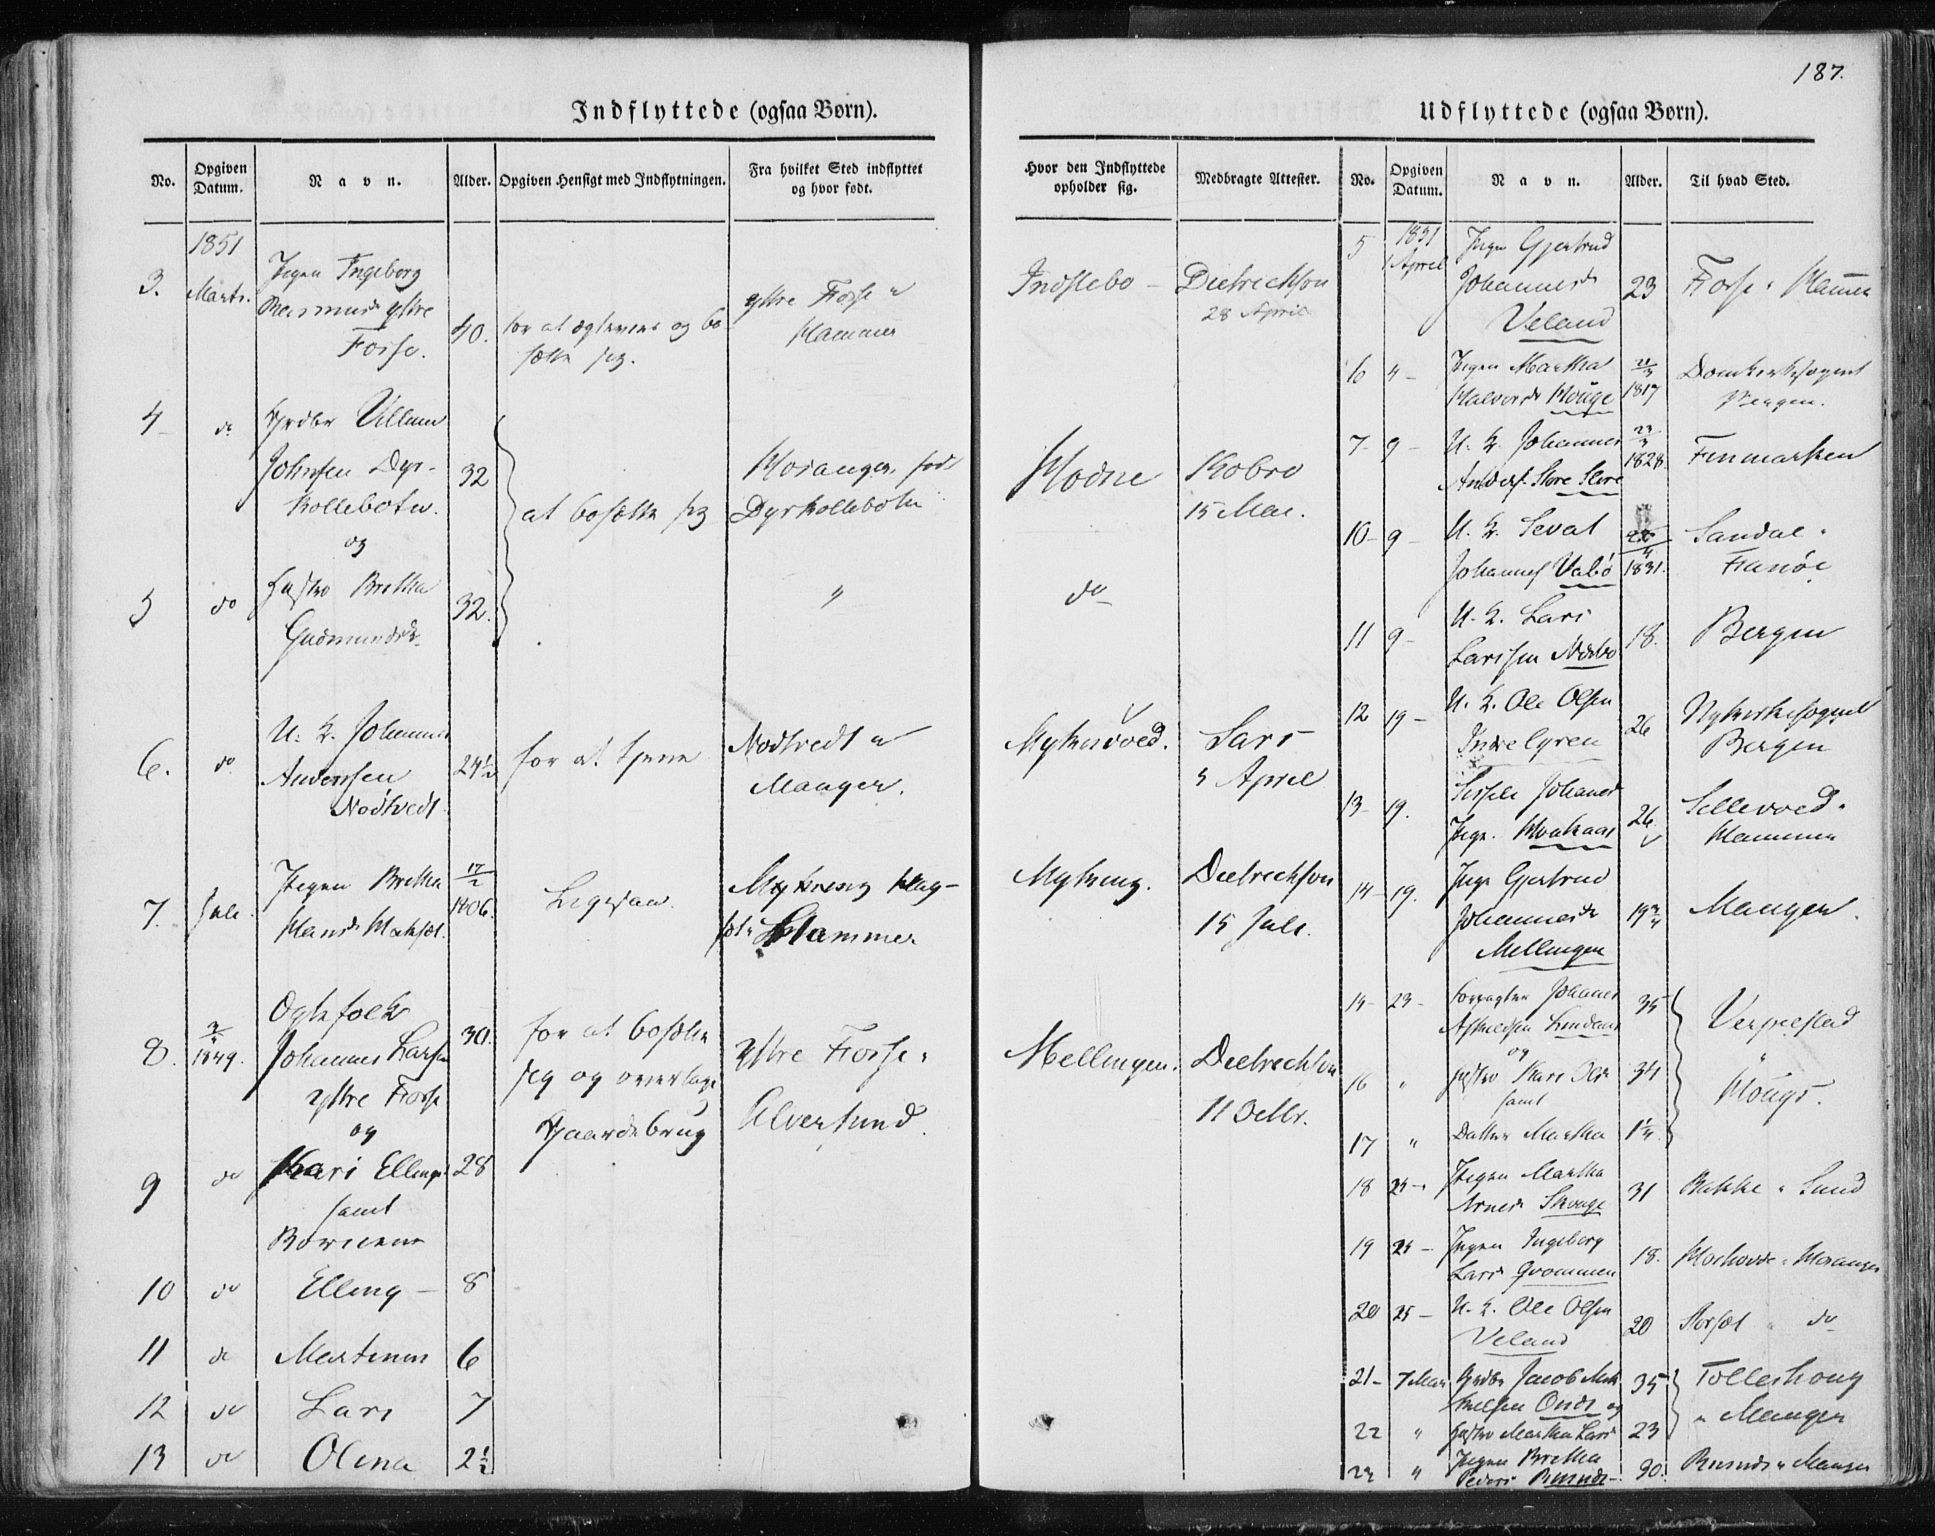 187.
Indflyttede (ogsaa Børn).
No.
Opgiven Datum.
Navn.
Alder.
Opgiven Hensigt med Indflytningen.
Fra hvilket Sted indflyttet og hvor født.
Hvor den Indflyttede opholder sig.
Medbragte Attester.
1851
3. Marts.
Pigen Ingeborg
Rasmusd Ystre
Fosse.
40.
for at ægtevies og bo-
sætte sig.
Ystre Fosse
Hammer
Indslebø
Dietrichson
28 April
4 do
Grdbr Villum
Johnsen Dyr-
kollebotn.
og
32
at bosætte sig
Hosanger, født
Dyrkollebotn
Hodne
Kobro
15 Mai.
5 do
Hustro Britha
Gudmundsdr
32.
"
do
6. do
U. K. Johannes
Andersen
Nødtvedt.
24½
for at tjene
Nodtvedt
Manger.
Mykesvoed.
Lars
April
7. Juli.
Pigen Britha
Hansd
17/2
1806.
Ligesaa.
Myking Hag-
Hammer
Myking.
Dietrichson
15 Juli.
8. 1849.
Ægtefolk
Johannes Larsen
Ystre Fosse
og
30.
for at bosætte
sig og overtage
Gaardsbrug
Ystre Fosse
Alversund.
Mellingen.
Dietrichson
11 Octbr.
9 do
Kari Ellingsd
samt
Børnene
28
10 do Elling 8
11 do Martinus 6
12 do Lars 7
13 do Olina 2½
Udflyttede (ogsaa Børn).
No.
Opgiven Datum.
Navn.
Alder.
Til hvad Sted.
1851
5 1 April
Pigen Gjertrud
Johannesd
Veland
23
Fosse Hammer
6 "
Pigen Martha
Halvorsd Houge
1817
Domkirkesognet
Bergen.
7 9
U. K. Johannes
Anders. Store
1828
Finmarken
10 9
U. K. Sevat
Johannes. Vabø
1831.
Sandal
Fanøe
11 9
U. K. Lars
Larssen
18.
Bergen
12 19
U. K. Ole Olsen
Indre Lyren
26
Nykirkesognet
Bergen
13 19.
Sissele Johannesd
Pige.
26
Sellevoed
Hammer
14 19.
Pige Gjertrud
Johannesdr
Mellingen
19¾
Manger.
15 23
Forpagter Johannes
og
35
Verpestad
"
Hougs.
16 "
Hustro Kari Olsdr
samt
34
17 "
Datter Martha
1¼
18 25
Pigen Martha
Arnesdr Skouge
31
Bakke Sund
19 25
Pigen Ingeborg
Larsd Qvammen
18.
Hosanger
20 25
U. K. Ole Olsen
Veland
20
do
21 7 Mai
Grdbr Jacob Mik-
kelsen og
35
Tolleshoug
Manger
22 "
Hustro Martha Larsd
23
23 "
Pigen Britha
Peders
30.
Manger